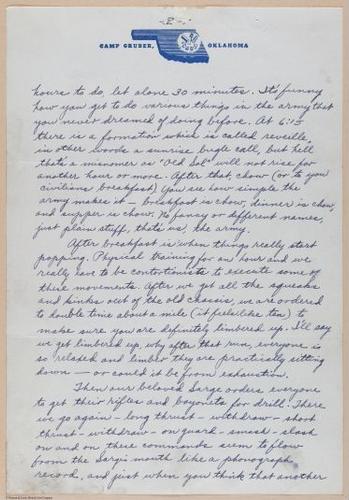 -2-
CAMP GRUBER, OKLAHOMA
hours to do, let alone 30 minutes. It's funny
how you get to do various things in the army that
you never dreamed of doing before. At 6:15
there is a formation which is called reveille,
in other words a sunrise bugle call, but hell
that's a misnomer as "Old Sol" will not rise for
another hour or more. After that, chow (or to you
civilians breakfast). You see how simple the
army makes it - breakfast is chow, dinner is chow,
and supper is chow. No fancy or different names,
just plain stuff, that's us, the army.
After breakfast is when things really start
popping. Physical training for an hour and we
really have to be contortionists to execute some of
these movements. After we get all the squeaks
and kinks out of the old chassis, we are ordered
to double time about a mile (it feels like ten) to
make sure you are definitely limbered up. I'll say
we get limbered up, why after that run, everyone is
so relaxed and limber they are practically sitting
down — or could it be from exhaustion.
Then our beloved Sarge orders everyone
to get their rifles and bayonets for drill. There
we go again - long thrust - withdraw - short
thrust - withdraw - on guard - smash - slash
on and on these commands seem to flow
from the Sarge's mouth like a phonograph
record, and just when you think that another